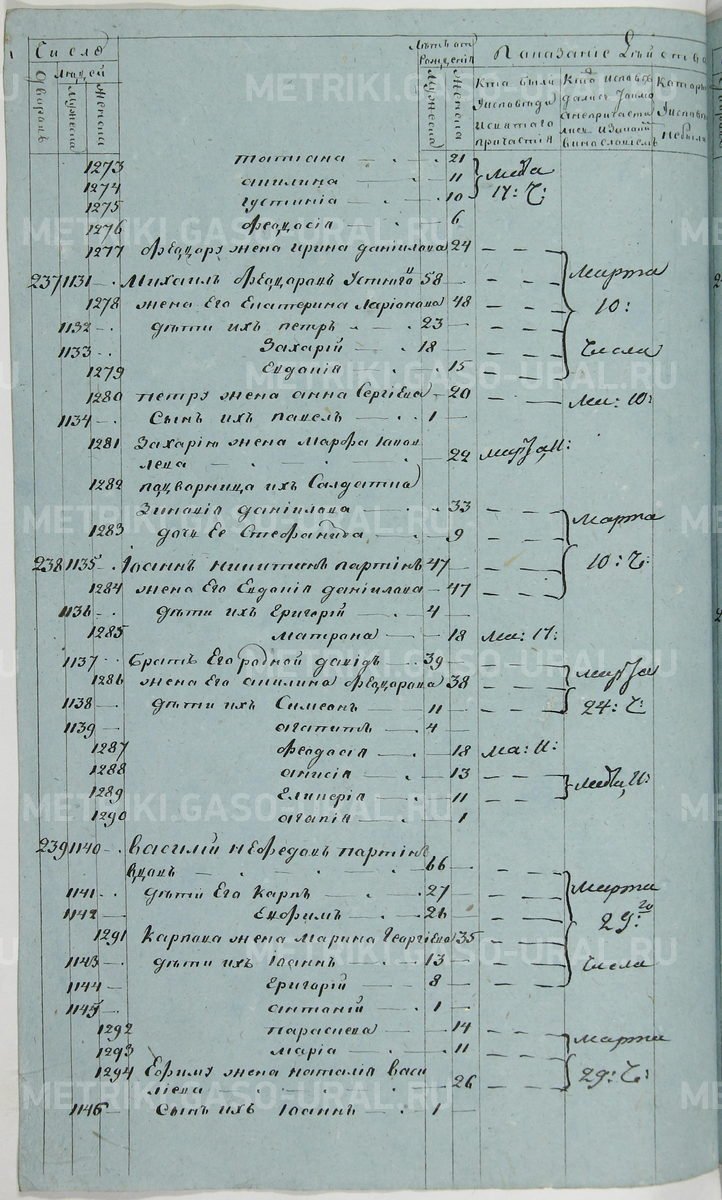 Число
Людей
Дворовъ
Мужеска
Женска
Лѣта отъ Рожденія
Мужеска
Женска
Показаніе Дѣйства
Кто были Уисповѣди Исвятаго причастія
Кто исповѣдались Токмо анепричастились
Уисповѣди небыли
1273 татіана — 21
1274 акилина — 11 Марта
1275 густинія — 10 17: Ч:
1276 Феодосія — 6
1277 Феодору жена ирина даніилова 24
237 1131 Михаилъ Феодоровъ Устюго 58 Марта
1278 жена Его Екатерина Ларіонова 48 10:
1132 дѣти ихъ петръ — 23
1133 Захарій — 18 Числа
1279 Евдокія — 15
1280 петру жена анна Сергіева 20 Ма: 10:
1134 Сынъ ихъ павелъ — 1
1281 Захарію жена Марфа Іаков
лева — 22 Марта, 11:
1282 падворница ихъ Салдатка
Зиновія даніилова — 33 Марта
1283 дочь Ее Стефанида — 9
238 1135 Іоаннъ никитинъ партинъ 47 10: Ч:
1284 жена Его Евдокія даніилова 47
1136 дѣти ихъ Григорій — 4
1285 матрона — 18 Ма: 17:
1137 Братъ Его родной давидъ 39 Марта
1286 жена Его акилина Феодорова 38
1138 дѣти ихъ Симеонъ — 11 24: Ч:
1139 агапитъ — 4
1287 Феодосія — 18 Ма: 11:
1288 анисія — 13
1289 Гликерія — 11
1290 агапія — 1
239 1140 василій неФедовъ партинъ
вдовъ — 66
1141 дѣти Его Карпъ — 27 Марта
1142 Евфимъ — 26 29:го
1291 Карпова жена Марина Георгіева 35
1143 дѣти ихъ Іоаннъ — 13 Числа
1144 Григорій — 8
1145 антоній — 1
1292 параскева — 14 Марта
1293 марія — 11
1294 Ефиму жена наталія васи
ліева — 26 29: Ч:
1146 Сынъ ихъ Іоаннъ — 1
METRIKI.GASO-URAL.RU